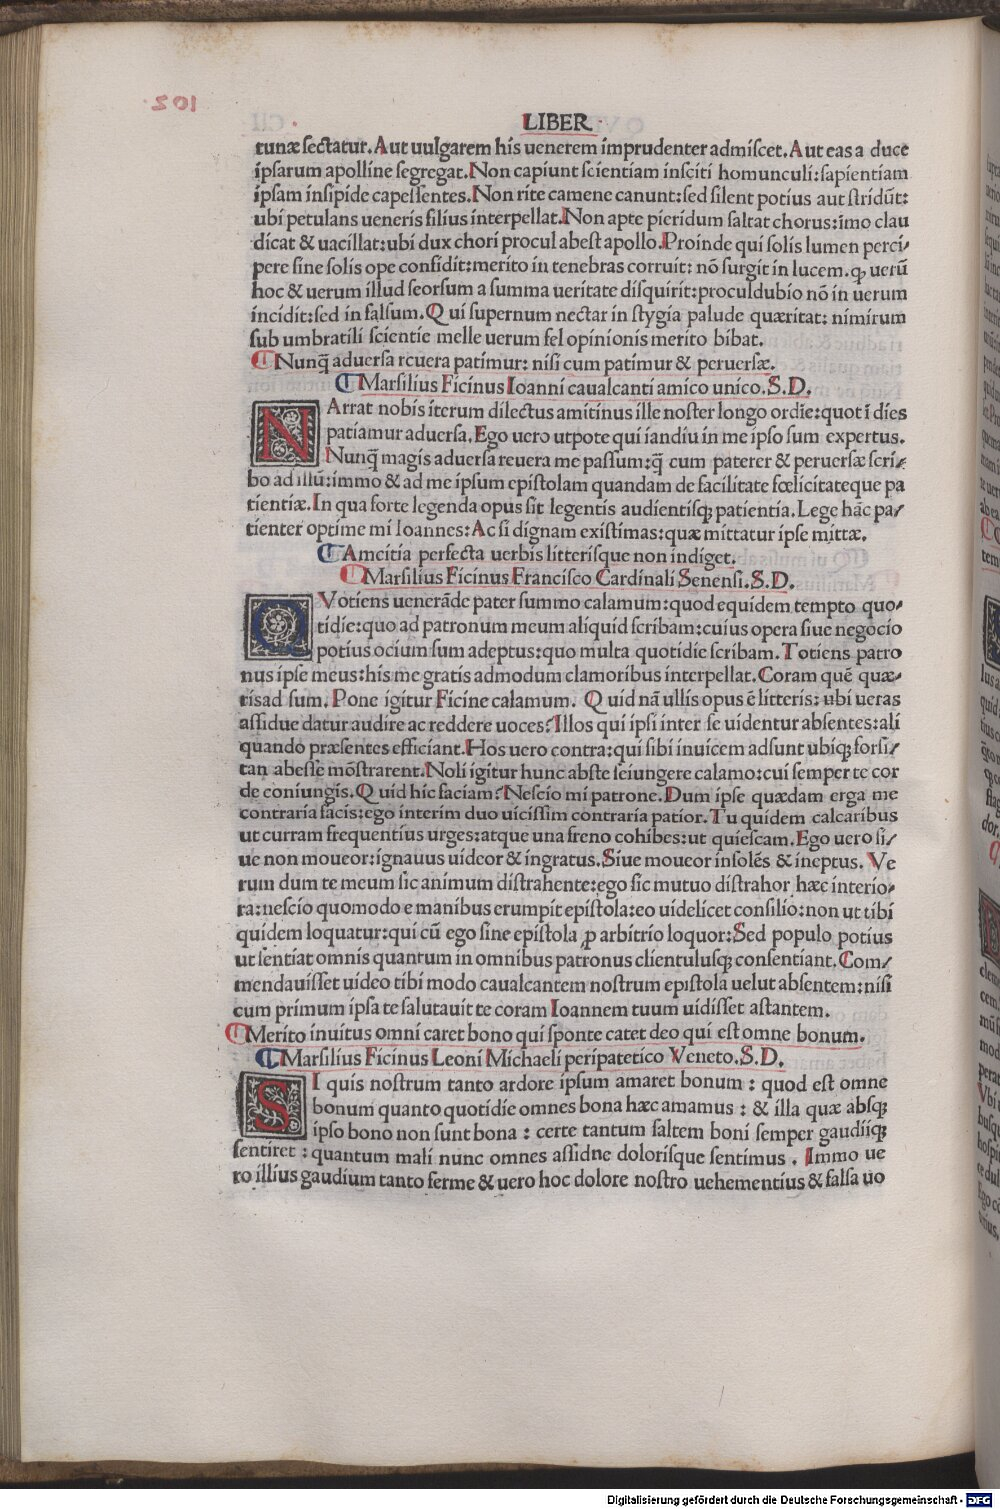 LIBER
tunæ sectatur. Aut uulgarem his uenerem imprudenter admiscet. Aut eas a duce
ipsarum apolline segregat. Non capiunt scientiam insciti homunculi: sapientiam
ipsam insipide capessentes. Non rite camene canunt: sed silent potius aut stridūt:
ubi petulans ueneris filius interpellat. Non apte pieridum saltat chorus: imo clau
dicat & uacillat: ubi dux chori procul abest apollo. Proinde qui solis lumen perci/
pere sine solis ope confidit: merito in tenebras corruit: nō surgit in lucem. ꝙ uerū
hoc & uerum illud seorsum a summa ueritate disquirit: proculdubio nō in uerum
incidit: sed in falsum. Qui supernum nectar in stygia palude quæritat: nimirum
sub umbratili scientie melle uerum fel opinionis merito bibat.
¶ Nunq̄ aduersa reuera patimur: nisi cum patimur & peruersæ.
¶ Marsilius Ficinus Ioanni caualcanti amico unico. S. D.
NArrat nobis iterum dilectus amitinus ille noster longo ordīe: quot ī dies
patiamur aduersa. Ego uero utpote qui iandiu in me ipso sum expertus.
Nunq̄ magis aduersa reuera me passum: q̄ cum paterer & peruersæ scri/
bo ad illū: immo & ad me ipsum epistolam quandam de facilitate fœlicitateque pa
tientiæ. In qua forte legenda opus sit legentis audientisq; patientia. Lege hāc pa/
tienter optime mi Ioannes: Ac si dignam existimas: quæ mittatur ipse mittæ.
¶ Amcitia perfecta uerbis litterisque non indiget.
¶ Marsilius Ficinus Francisco Cardinali Senensi. S. D.
QVotiens uenerāde pater summo calamum: quod equidem tempto quo/
tidie: quo ad patronum meum aliquid scribam: cuius opera siue negocio
potius ocium sum adeptus: quo multa quotidie scribam. Totiens patro
nus ipse meus: his me gratis admodum clamoribus interpellat. Coram quē quæ/
ris ad sum. Pone igitur Ficine calamum. Quid nā ullis opus ē litteris: ubi ueras
assidue datur audire ac reddere uoces? Illos qui ipsi inter se uidentur absentes: ali
quando præsentes efficiant. Hos uero contra: qui sibi inuicem adsunt ubiq; forsi/
tan abesse mōstrarent. Noli igitur hunc abste seiungere calamo: cui semper te cor
de coniungis. Quid hic faciam? Nescio mi patrone. Dum ipse quædam erga me
contraria facis: ego interim duo uicissim contraria patior. Tu quidem calcaribus
ut curram frequentius urges: atque una freno cohibes: ut quiescam. Ego uero si/
ue non moueor: ignauus uideor & ingratus. Siue moueor insolēs & ineptus. Ve
rum dum te meum sic animum distrahente: ego sic mutuo distrahor hæc interio/
ra: nescio quomodo e manibus erumpit epistola: eo uidelicet consilio: non ut tibi
quidem loquatur: qui cū ego sine epistola ꝓ arbitrio loquor: Sed populo potius
ut sentiat omnis quantum in omnibus patronus clientulusq; consentiant. Com/
mendauisset uideo tibi modo caualcantem nostrum epistola uelut absentem: nisi
cum primum ipsa te salutauit te coram Ioannem tuum uidisset astantem.
¶ Merito inuitus omni caret bono qui sponte caret deo qui est omne bonum.
¶ Marsilius Ficinus Leoni Michaeli peripatetico Veneto. S. D.
SI quis nostrum tanto ardore ipsum amaret bonum : quod est omne
bonum quanto quotidie omnes bona hæc amamus : & illa quæ absq;
ipso bono non sunt bona : certe tantum saltem boni semper gaudiiq;
sentiret : quantum mali nunc omnes assidne dolorisque sentimus . Immo ue
ro illius gaudium tanto ferme & uero hoc dolore nostro uehementius & falsa uo
Digitalisierung gefördert durch die Deutsche Forschungsgemeinschaft - DFG